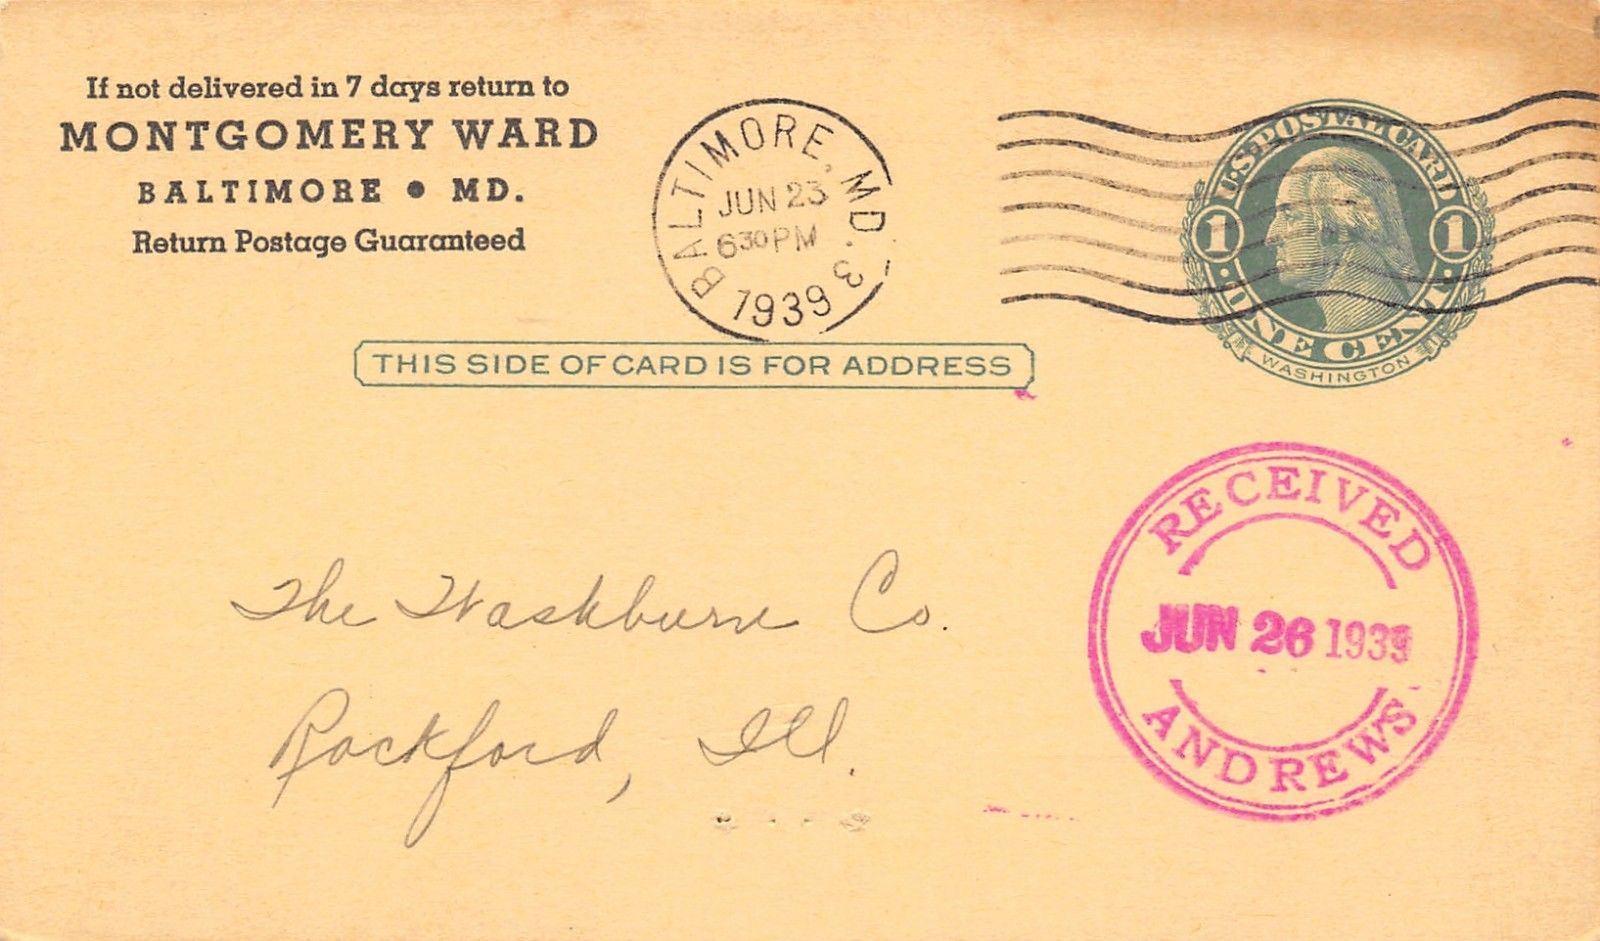 If not delivered in 7 days return to
MONTGOMERY WARD
BALTIMORE • MD.
Return Postage Guaranteed
BALTIMORE, MD. 3
JUN 23
6 30 PM
1939
U.S. POSTAL CARD
1 1
ONE CENT
WASHINGTON
THIS SIDE OF CARD IS FOR ADDRESS
RECEIVED
JUN 26 1939
ANDREWS
The Washburne Co.
Rockford, Ill.